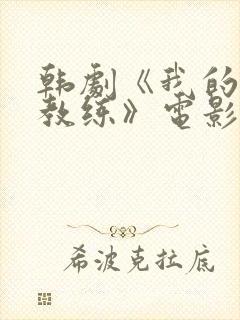 韩劇《我的
教练》電影
希波克拉底